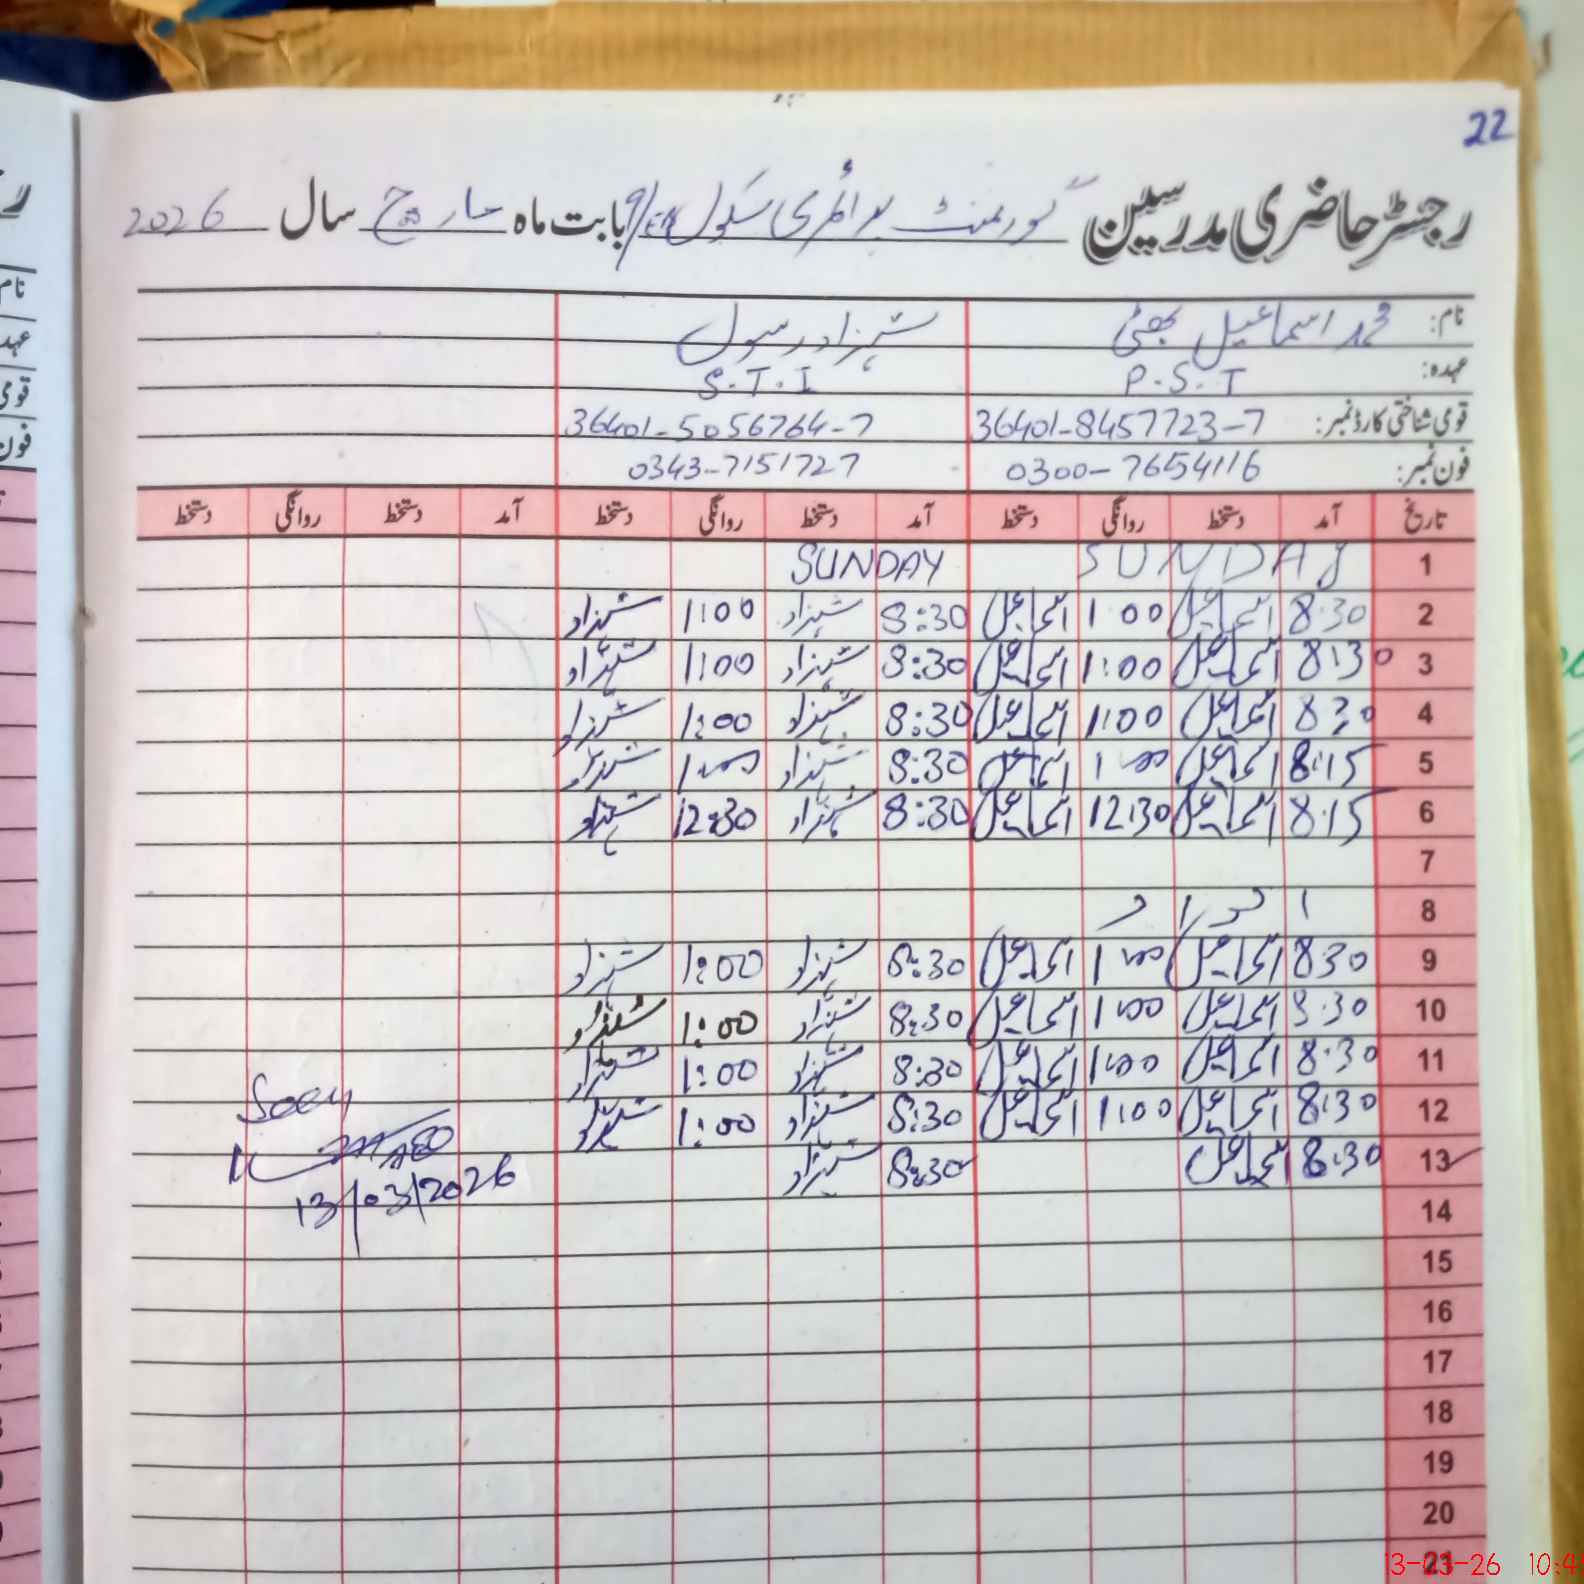 22
رجسٹر حاضری مدرسین گورنمنٹ پرائمری سکول بابت ماہ مارچ سال 2026
نام: محمد اسماعیل بھٹی شہزاد رسول
عہدہ: P.S.T S.T.I
قومی شناختی کارڈ نمبر: 36401-8457723-7 36401-5056764-7
فون نمبر: 0300-7654116 0343-7151727
تاریخ آمد دستخط روانگی دستخط آمد دستخط روانگی دستخط آمد دستخط روانگی دستخط
1 SUNDAY SUNDAY
2 8:30 اسماعیل 1:00 اسماعیل 8:30 شہزاد 1:00 شہزاد
3 8:30 اسماعیل 1:00 اسماعیل 8:30 شہزاد 1:00 شہزاد
4 8:30 اسماعیل 1:00 اسماعیل 8:30 شہزاد 1:00 شہزاد
5 8:15 اسماعیل 1:00 اسماعیل 8:30 شہزاد 1:00 شہزاد
6 8:15 اسماعیل 12:30 اسماعیل 8:30 شہزاد 12:30 شہزاد
7
8 اتوار
9 8:30 اسماعیل 1:00 اسماعیل 8:30 شہزاد 1:00 شہزاد
10 8:30 اسماعیل 1:00 اسماعیل 8:30 شہزاد 1:00 شہزاد
11 8:30 اسماعیل 1:00 اسماعیل 8:30 شہزاد 1:00 شہزاد
12 8:30 اسماعیل 1:00 اسماعیل 8:30 شہزاد 1:00 شہزاد
13 8:30 اسماعیل 8:30 شہزاد
Seen
AEO
13/03/2026
14
15
16
17
18
19
20
21
13-03-26 10:4